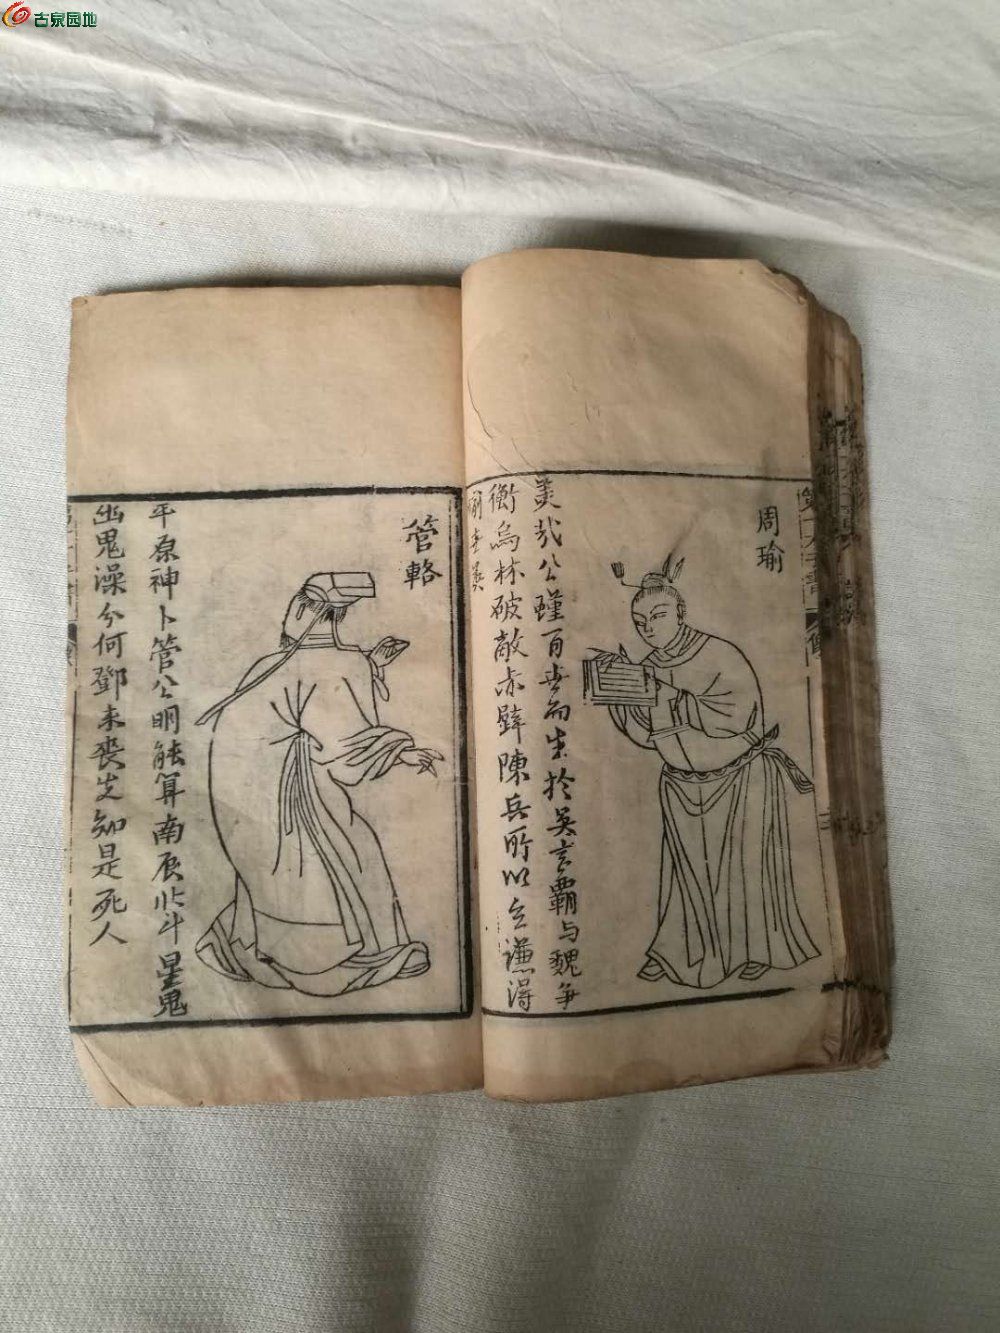 古泉园地
周瑜
美哉公瑾百世而生於吴言霸与魏争
衡烏林破敵赤壁陳兵所以立謙得
管輅
平原神卜管公明能算南辰北斗星鬼
幽鬼澡分何鄧未喪先知是死人